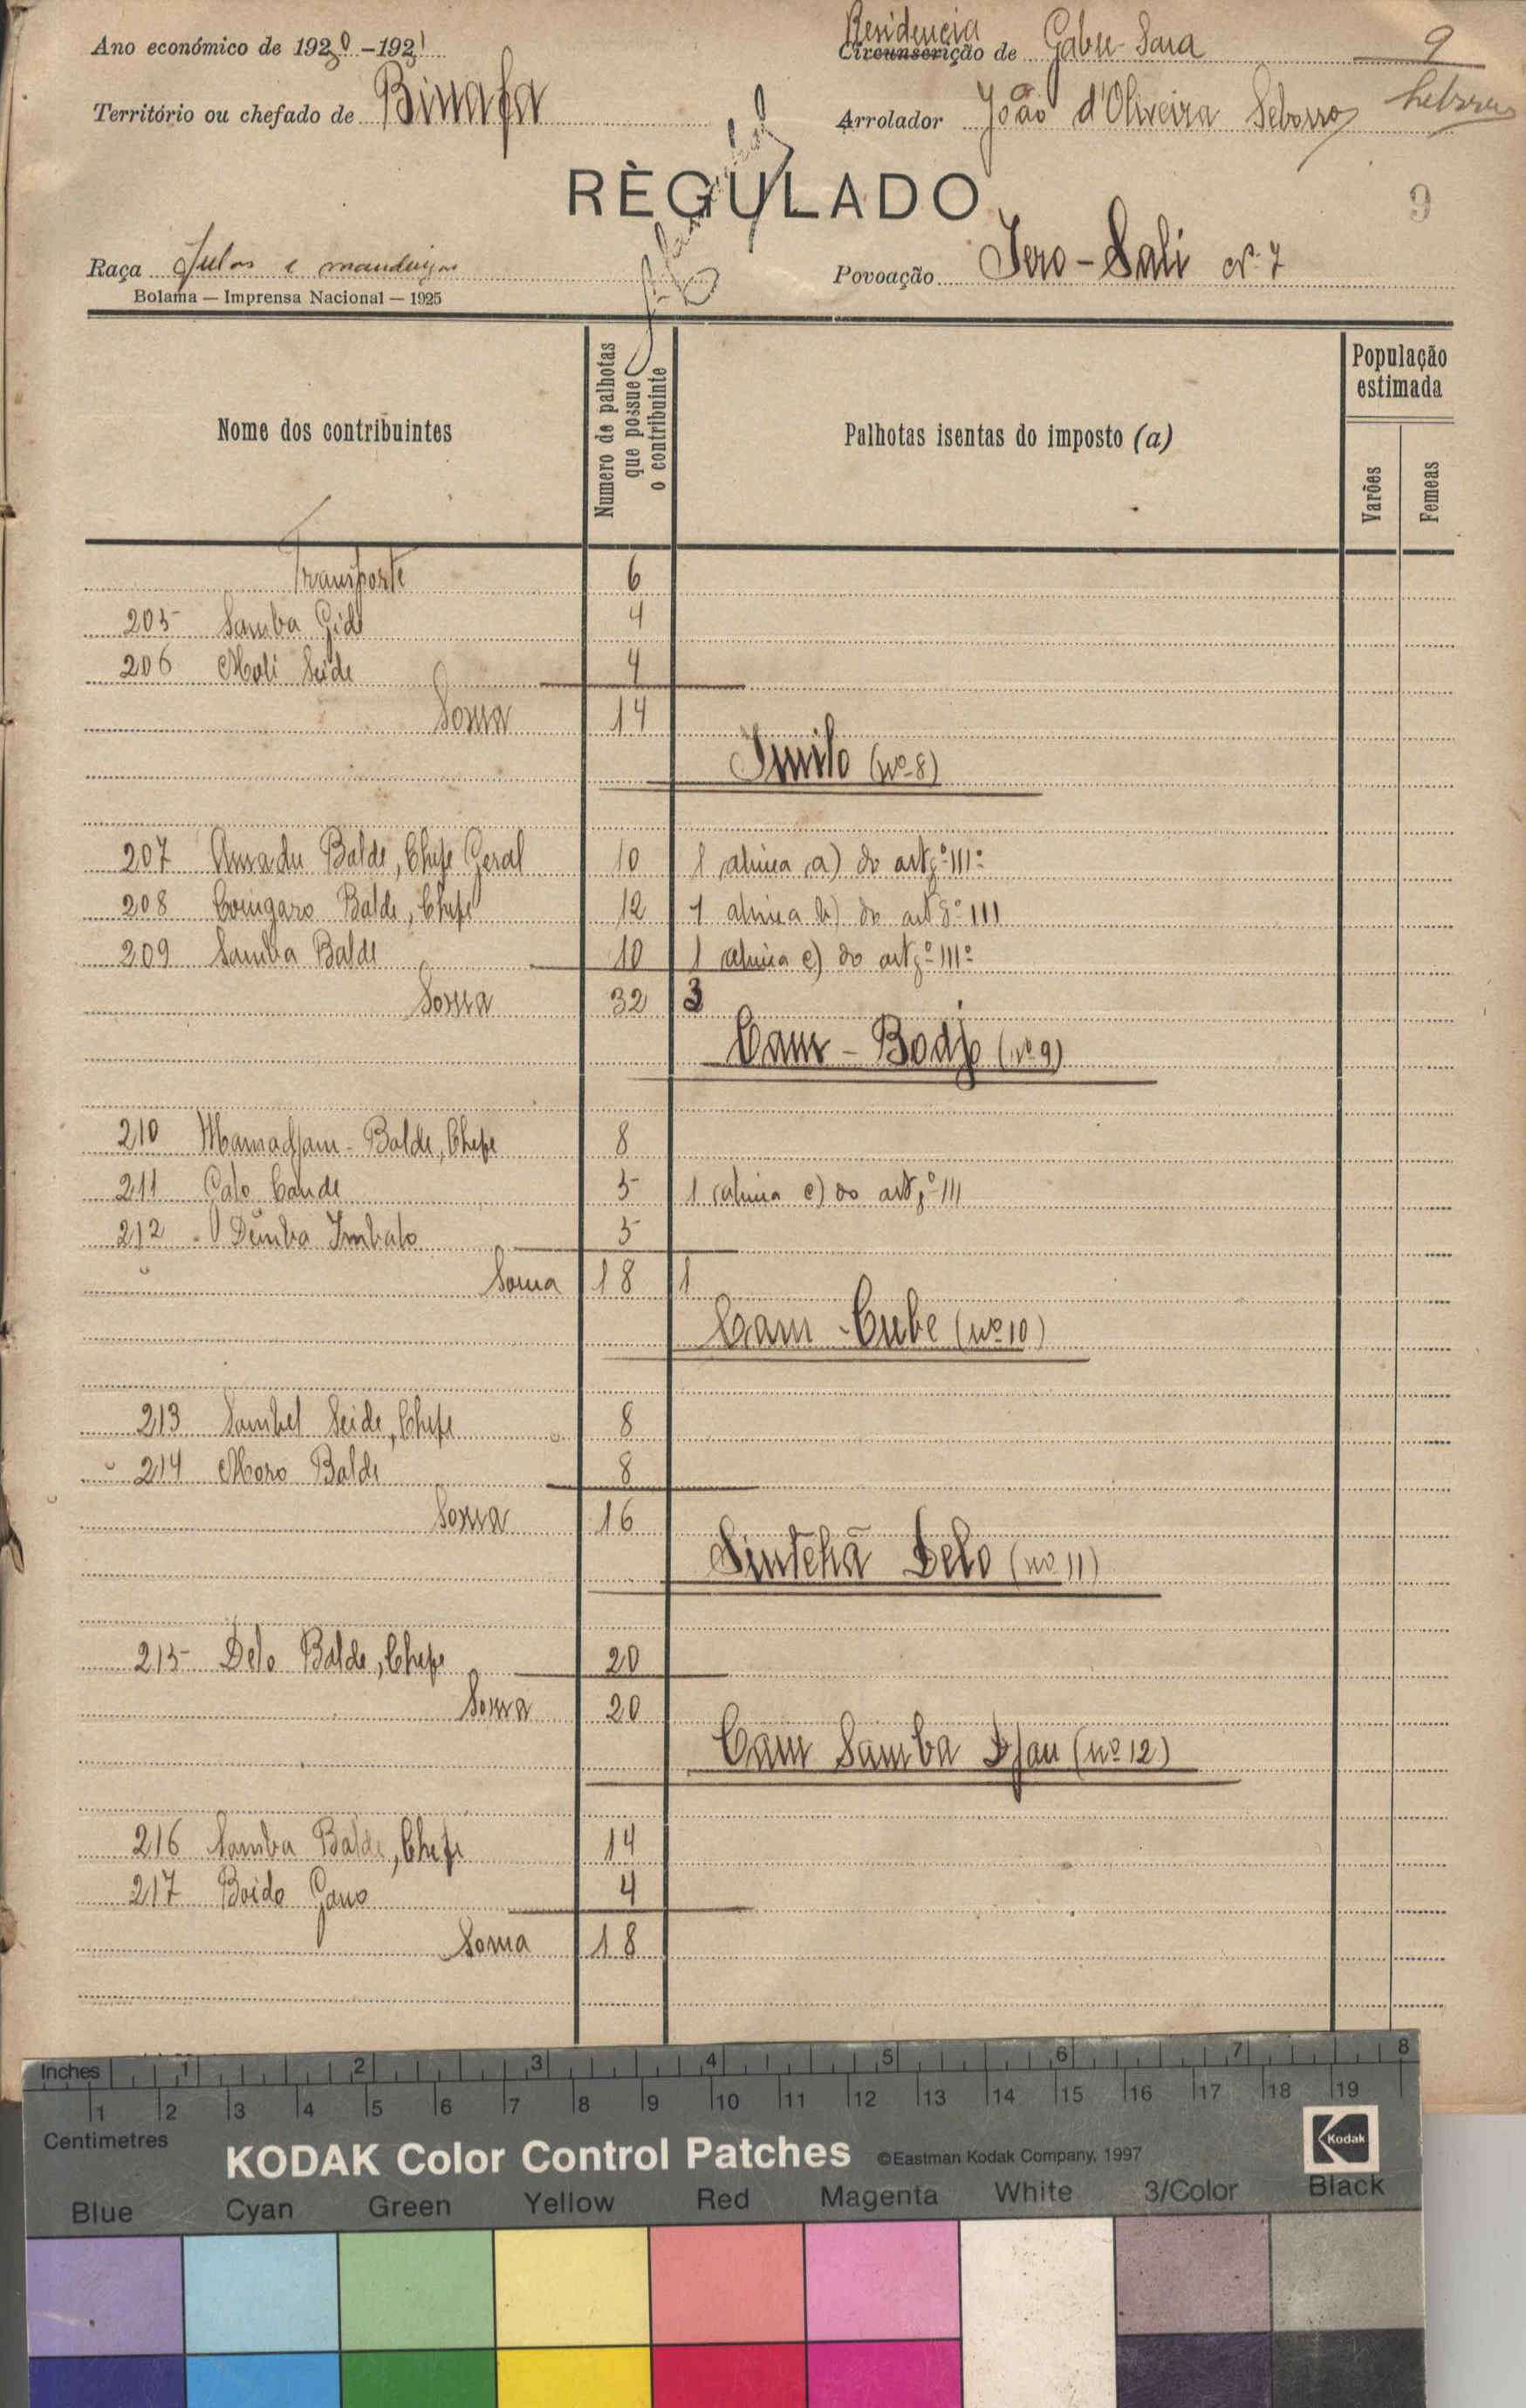 Ano económico de 1920-1921
Residencia
Circunscrição de Gabu-Sara
9
Território ou chefado de Binafa
Arrolador João d'Oliveira
RÈGULADO
9
Raça Fulas e mandingas
Povoação Jero-Sali Nº 7
Bolama — Imprensa Nacional — 1925
Nome dos contribuintes
Numero de palhotas que possue o contribuinte
Palhotas isentas do imposto (a)
População estimada
Varões
Femeas
Transporte 6
205 Samba Gidé 4
206 Mali Seide 4
Soma 14
(nº 8)
207 Amadu Balde, Chefe Geral 10 1 alinea a) do artgº IIIº
208 Coingaro Balde, Chefe 12 1 alinea b) do artgº III
209 Samba Balde 10 1 alinea c) do artgº IIIº
Soma 32 3
Cam-Bodjo (nº 9)
210 Mamadjam-Balde, Chefe 8
211 Galo Cande 5 1 alinea c) do artgº III
212 Demba Imbalo 5
Soma 18 1
Cam-Cube (nº 10)
213 Sambel Seide, Chefe 8
214 Moro Balde 8
Soma 16
Sintchã Delo (nº 11)
215 Delo Balde, Chefe 20
Soma 20
Cam Samba Djau (nº 12)
216 Samba Balde, Chefe 14
217 Boido Gano 4
Soma 18
Inches 1 2 3 4 5 6 7 8
1 2 3 4 5 6 7 8 9 10 11 12 13 14 15 16 17 18 19
Centimetres
KODAK Color Control Patches ©Eastman Kodak Company, 1997
Kodak
Blue Cyan Green Yellow Red Magenta White 3/Color Black